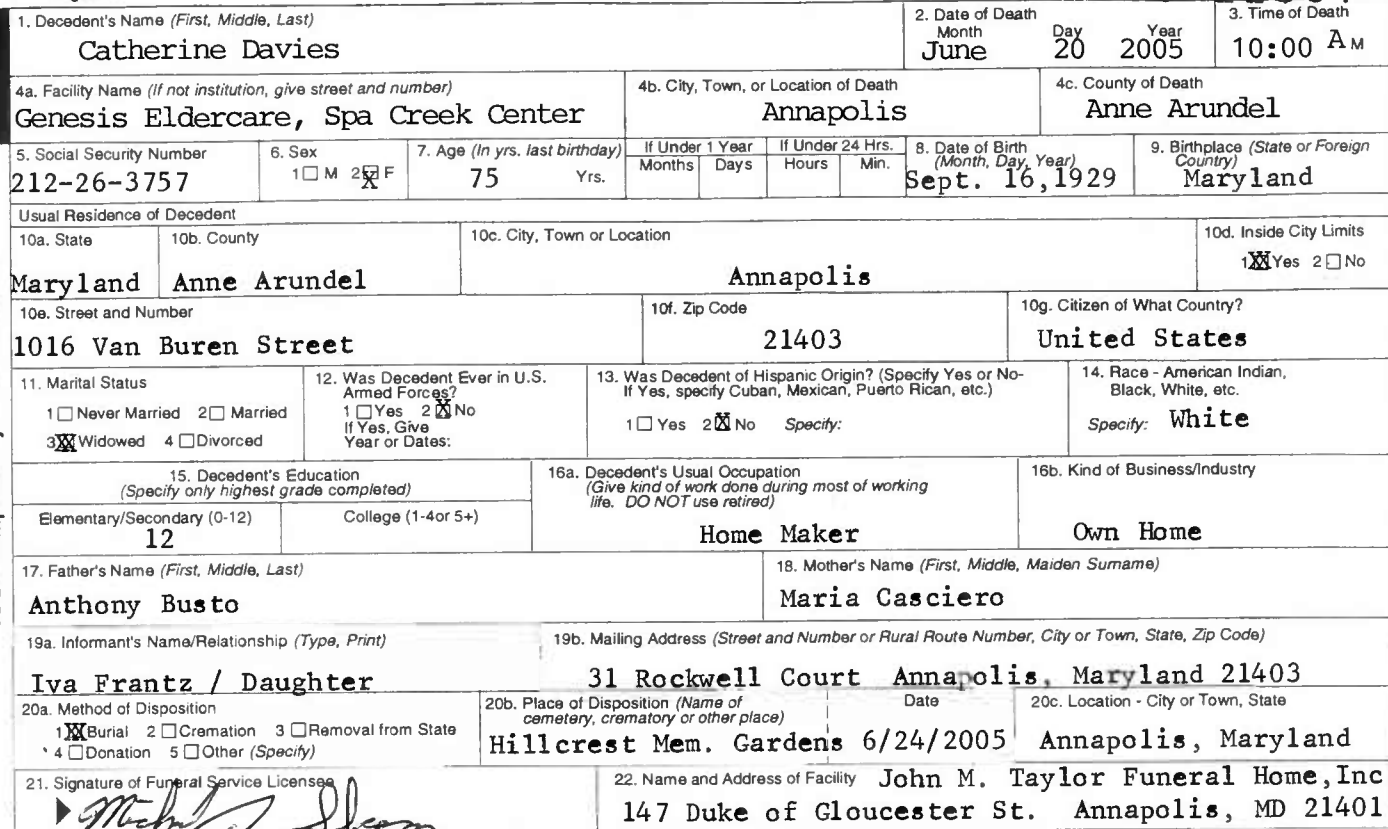 1. Decedent's Name (First, Middle, Last)
Catherine Davies
2. Date of Death
Month Day Year
June 20 2005
3. Time of Death
10:00 A M
4a. Facility Name (If not institution, give street and number)
Genesis Eldercare, Spa Creek Center
4b. City, Town, or Location of Death
Annapolis
4c. County of Death
Anne Arundel
5. Social Security Number
212-26-3757
6. Sex
1 ☐ M 2 ☒ F
7. Age (In yrs. last birthday)
75 Yrs.
If Under 1 Year
Months Days
If Under 24 Hrs.
Hours Min.
8. Date of Birth
(Month, Day, Year)
Sept. 16,1929
9. Birthplace (State or Foreign
Country)
Maryland
Usual Residence of Decedent
10a. State
Maryland
10b. County
Anne Arundel
10c. City, Town or Location
Annapolis
10d. Inside City Limits
1 ☒ Yes 2 ☐ No
10e. Street and Number
1016 Van Buren Street
10f. Zip Code
21403
10g. Citizen of What Country?
United States
11. Marital Status
1 ☐ Never Married 2 ☐ Married
3 ☒ Widowed 4 ☐ Divorced
12. Was Decedent Ever in U.S.
Armed Forces?
1 ☐ Yes 2 ☒ No
If Yes, Give
Year or Dates:
13. Was Decedent of Hispanic Origin? (Specify Yes or No-
If Yes, specify Cuban, Mexican, Puerto Rican, etc.)
1 ☐ Yes 2 ☒ No Specify:
14. Race - American Indian,
Black, White, etc.
Specify: White
15. Decedent's Education
(Specify only highest grade completed)
Elementary/Secondary (0-12)
12
College (1-4or 5+)
16a. Decedent's Usual Occupation
(Give kind of work done during most of working
life. DO NOT use retired)
Home Maker
16b. Kind of Business/Industry
Own Home
17. Father's Name (First, Middle, Last)
Anthony Busto
18. Mother's Name (First, Middle, Maiden Surname)
Maria Casciero
19a. Informant's Name/Relationship (Type, Print)
Iva Frantz / Daughter
19b. Mailing Address (Street and Number or Rural Route Number, City or Town, State, Zip Code)
31 Rockwell Court Annapolis, Maryland 21403
20a. Method of Disposition
1 ☒ Burial 2 ☐ Cremation 3 ☐ Removal from State
4 ☐ Donation 5 ☐ Other (Specify)
20b. Place of Disposition (Name of
cemetery, crematory or other place)
Hillcrest Mem. Gardens
Date
6/24/2005
20c. Location - City or Town, State
Annapolis, Maryland
21. Signature of Funeral Service Licensee
22. Name and Address of Facility John M. Taylor Funeral Home,Inc
147 Duke of Gloucester St. Annapolis, MD 21401